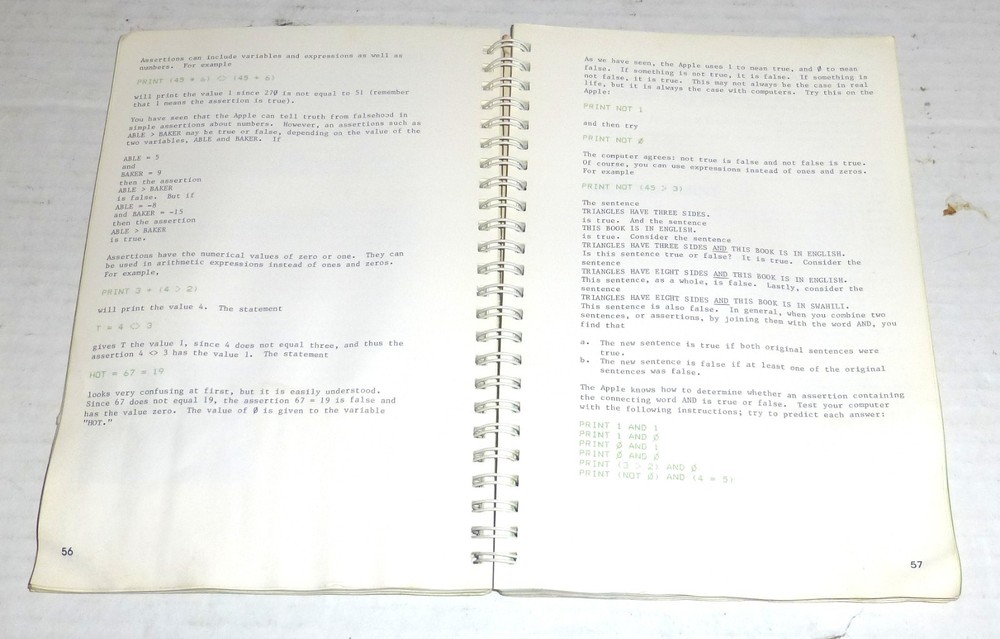 Assertions can include variables and expressions as well as
numbers.  For example
PRINT (45 * 6) <> (45 + 6)
will print the value 1 since 270 is not equal to 51 (remember
that 1 means the assertion is true).
You have seen that the Apple can tell truth from falsehood in
simple assertions about numbers.  However, an assertions such as
ABLE > BAKER may be true or false, depending on the value of the
two variables, ABLE and BAKER.  If
ABLE = 5
and
BAKER = 9
then the assertion
ABLE > BAKER
is false.  But if
ABLE = -8
and BAKER = -15
then the assertion
ABLE > BAKER
is true.
Assertions have the numerical values of zero or one.  They can
be used in arithmetic expressions instead of ones and zeros.
For example,
PRINT 3 + (4 > 2)
will print the value 4.  The statement
T = 4 <> 3
gives T the value 1, since 4 does not equal three, and thus the
assertion 4 <> 3 has the value 1.  The statement
HOT = 67 = 19
looks very confusing at first, but it is easily understood.
Since 67 does not equal 19, the assertion 67 = 19 is false and
has the value zero.  The value of Ø is given to the variable
"HOT."
56
As we have seen, the Apple uses 1 to mean true, and Ø to mean
false.  If something is not true, it is false.  If something is
not false, it is true.  This may not always be the case in real
life, but it is always the case with computers.  Try this on the
Apple:
PRINT NOT 1
and then try
PRINT NOT Ø
The computer agrees: not true is false and not false is true.
Of course, you can use expressions instead of ones and zeros.
For example
PRINT NOT (45 > 3)
The sentence
TRIANGLES HAVE THREE SIDES.
is true.  And the sentence
THIS BOOK IS IN ENGLISH.
is true.  Consider the sentence
TRIANGLES HAVE THREE SIDES AND THIS BOOK IS IN ENGLISH.
Is this sentence true or false?  It is true.  Consider the
sentence
TRIANGLES HAVE EIGHT SIDES AND THIS BOOK IS IN ENGLISH.
This sentence, as a whole, is false.  Lastly, consider the
sentence
TRIANGLES HAVE EIGHT SIDES AND THIS BOOK IS IN SWAHILI.
This sentence is also false.  In general, when you combine two
sentences, or assertions, by joining them with the word AND, you
find that
a.  The new sentence is true if both original sentences were
true.
b.  The new sentence is false if at least one of the original
sentences was false.
The Apple knows how to determine whether an assertion containing
the connecting word AND is true or false.  Test your computer
with the following instructions; try to predict each answer:
PRINT 1 AND 1
PRINT 1 AND Ø
PRINT Ø AND 1
PRINT Ø AND Ø
PRINT (3 > 2) AND Ø
PRINT (NOT Ø) AND (4 = 5)
57